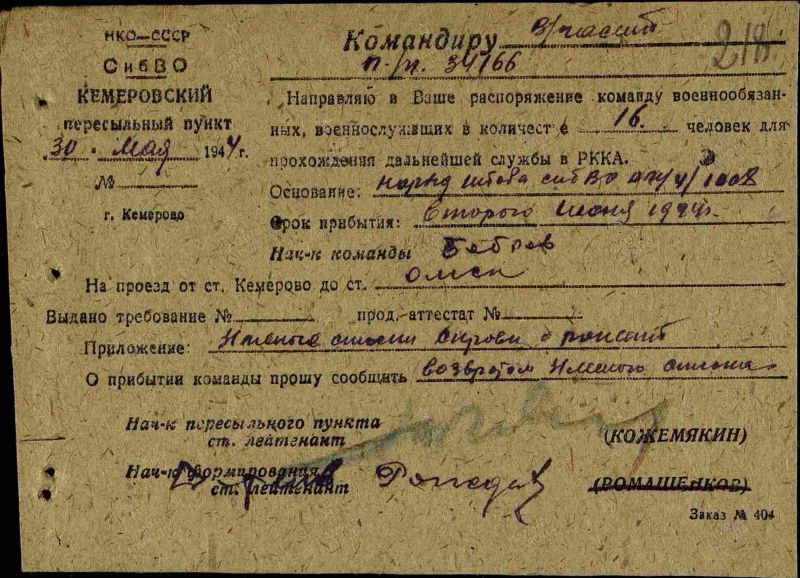 НКО—СССР
СибВО
КЕМЕРОВСКИЙ
пересыльный пункт
30 . Мая 1944 г.
№
г. Кемерово
218
Командиру В/части
п./п. 34166
Направляю в Ваше распоряжение команду военнообязан-
ных, военнослужащих в количест е 16. человек для
прохождения дальнейшей службы в РККА.
Основание: наряд штаба СибВО
Срок прибытия: Второго Июня 1944г.
Нач-к команды Бобров
На проезд от ст. Кемерово до ст. Омск
Выдано требование № прод.-аттестат №
Приложение: Именные списки
О прибытии команды прошу сообщить возвратом Именного списка
Нач-к пересыльного пункта
ст. лейтенант (КОЖЕМЯКИН)
Нач-к формирования
ст. лейтенант (РОМАЩЕНКОВ)
Заказ № 404